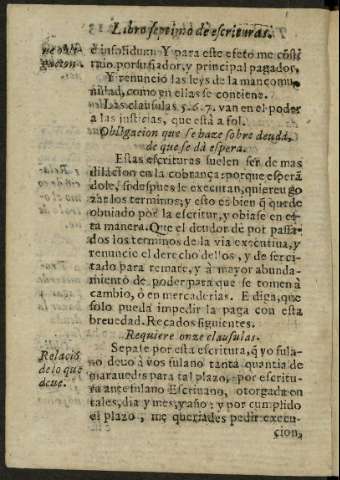 Libro septimo de escrituras.
è insolidum. Y para este efeto me cõsti
tuio por su fiador, y principal pagador,
Y renunciò las leys de la mancomu
nidad, como en ellas se contiene.
Las clausulas 5. 6. 7. van en el poder
a las justicias, que està a fol.
Obligacion que se haze sobre deuda,
de que se dà espera.
Estas escrituras suelen ser de mas
dilacion en la cobrança: porque esperã
dole, si despues le executan, quiereu go
zar los terminos; y esto es bien q̃ quede
obuiado por la escritur, y obiase en es
ta manera. Que el deudor de por passa
dos los terminos de la via executiua, y
renuncie el derecho dellos, y de ser ci-
tado para remate, y à mayor abunda-
miento de poder para que se tomen à
cambio, ò en mercaderias. E diga, que
solo pueda impedir la paga con esta
breuedad. Recados siguientes.
Requiere onze clausulas.
Relaciõ
de lo que
deue.
Sepase por esta escritura, q̃ yo fula-
no deuo à vos fulano tanta quantia de
marauedis para tal plazo, por escritu
ra ante fulano Escriuano, otorgada en
tales, dia y mes, y año: y por cumplido
el plazo, me queriades pedir execu-
cion,